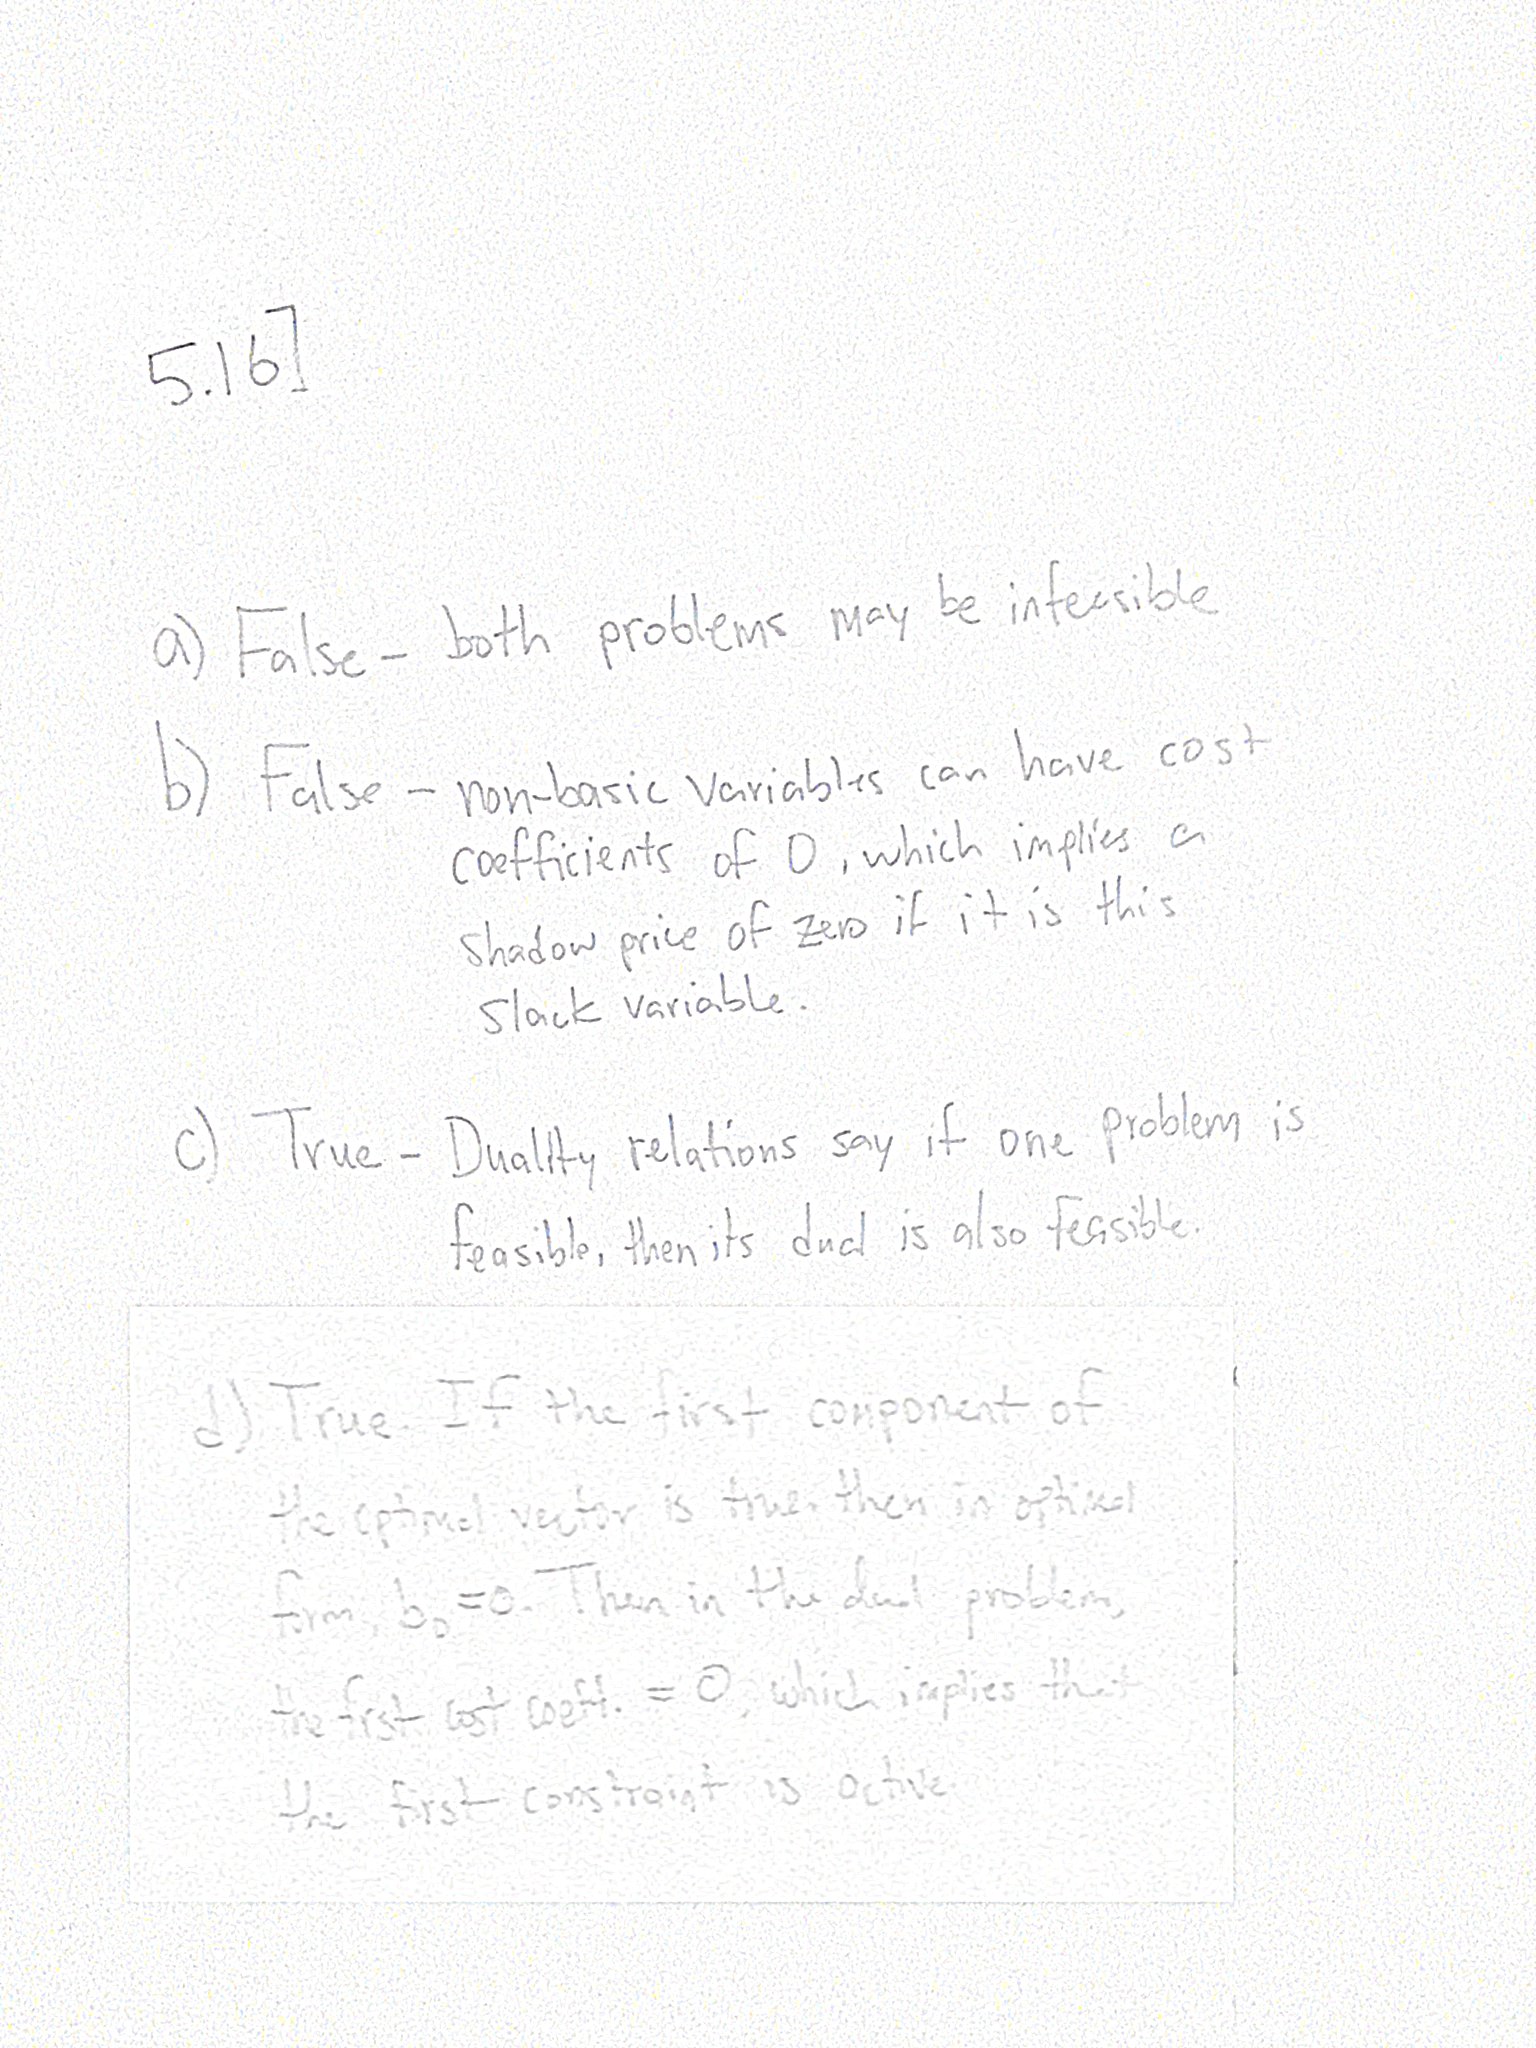 5.16]
a) False - both problems may be infeasible
b) False - non-basic variables can have cost
coefficients of 0, which implies a
shadow price of zero if it is this
slack variable.
c) True - Duality relations say if one problem is
feasible, then its dual is also feasible.
d) True. If the first component of
the optimal vector is true, then in optimal
form, b₀ = 0. Then in the dual problem,
the first cost coeff. = 0, which implies that
the first constraint is active